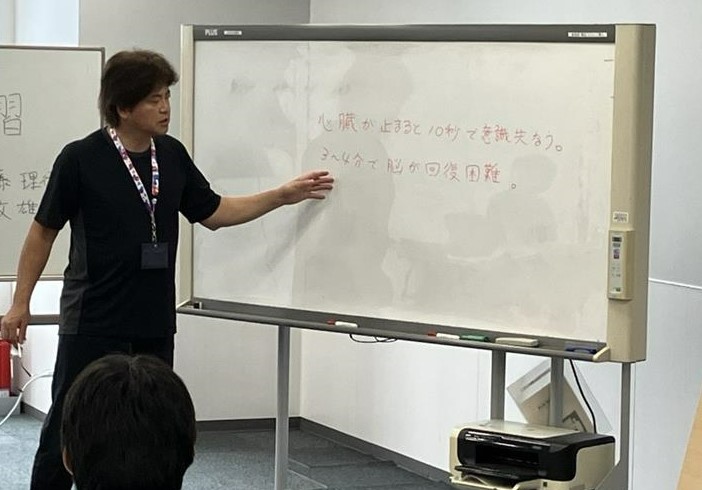 PLUS
心臓が止まると10秒で意識失なう。
3〜4分で脳が回復困難。
理
雄